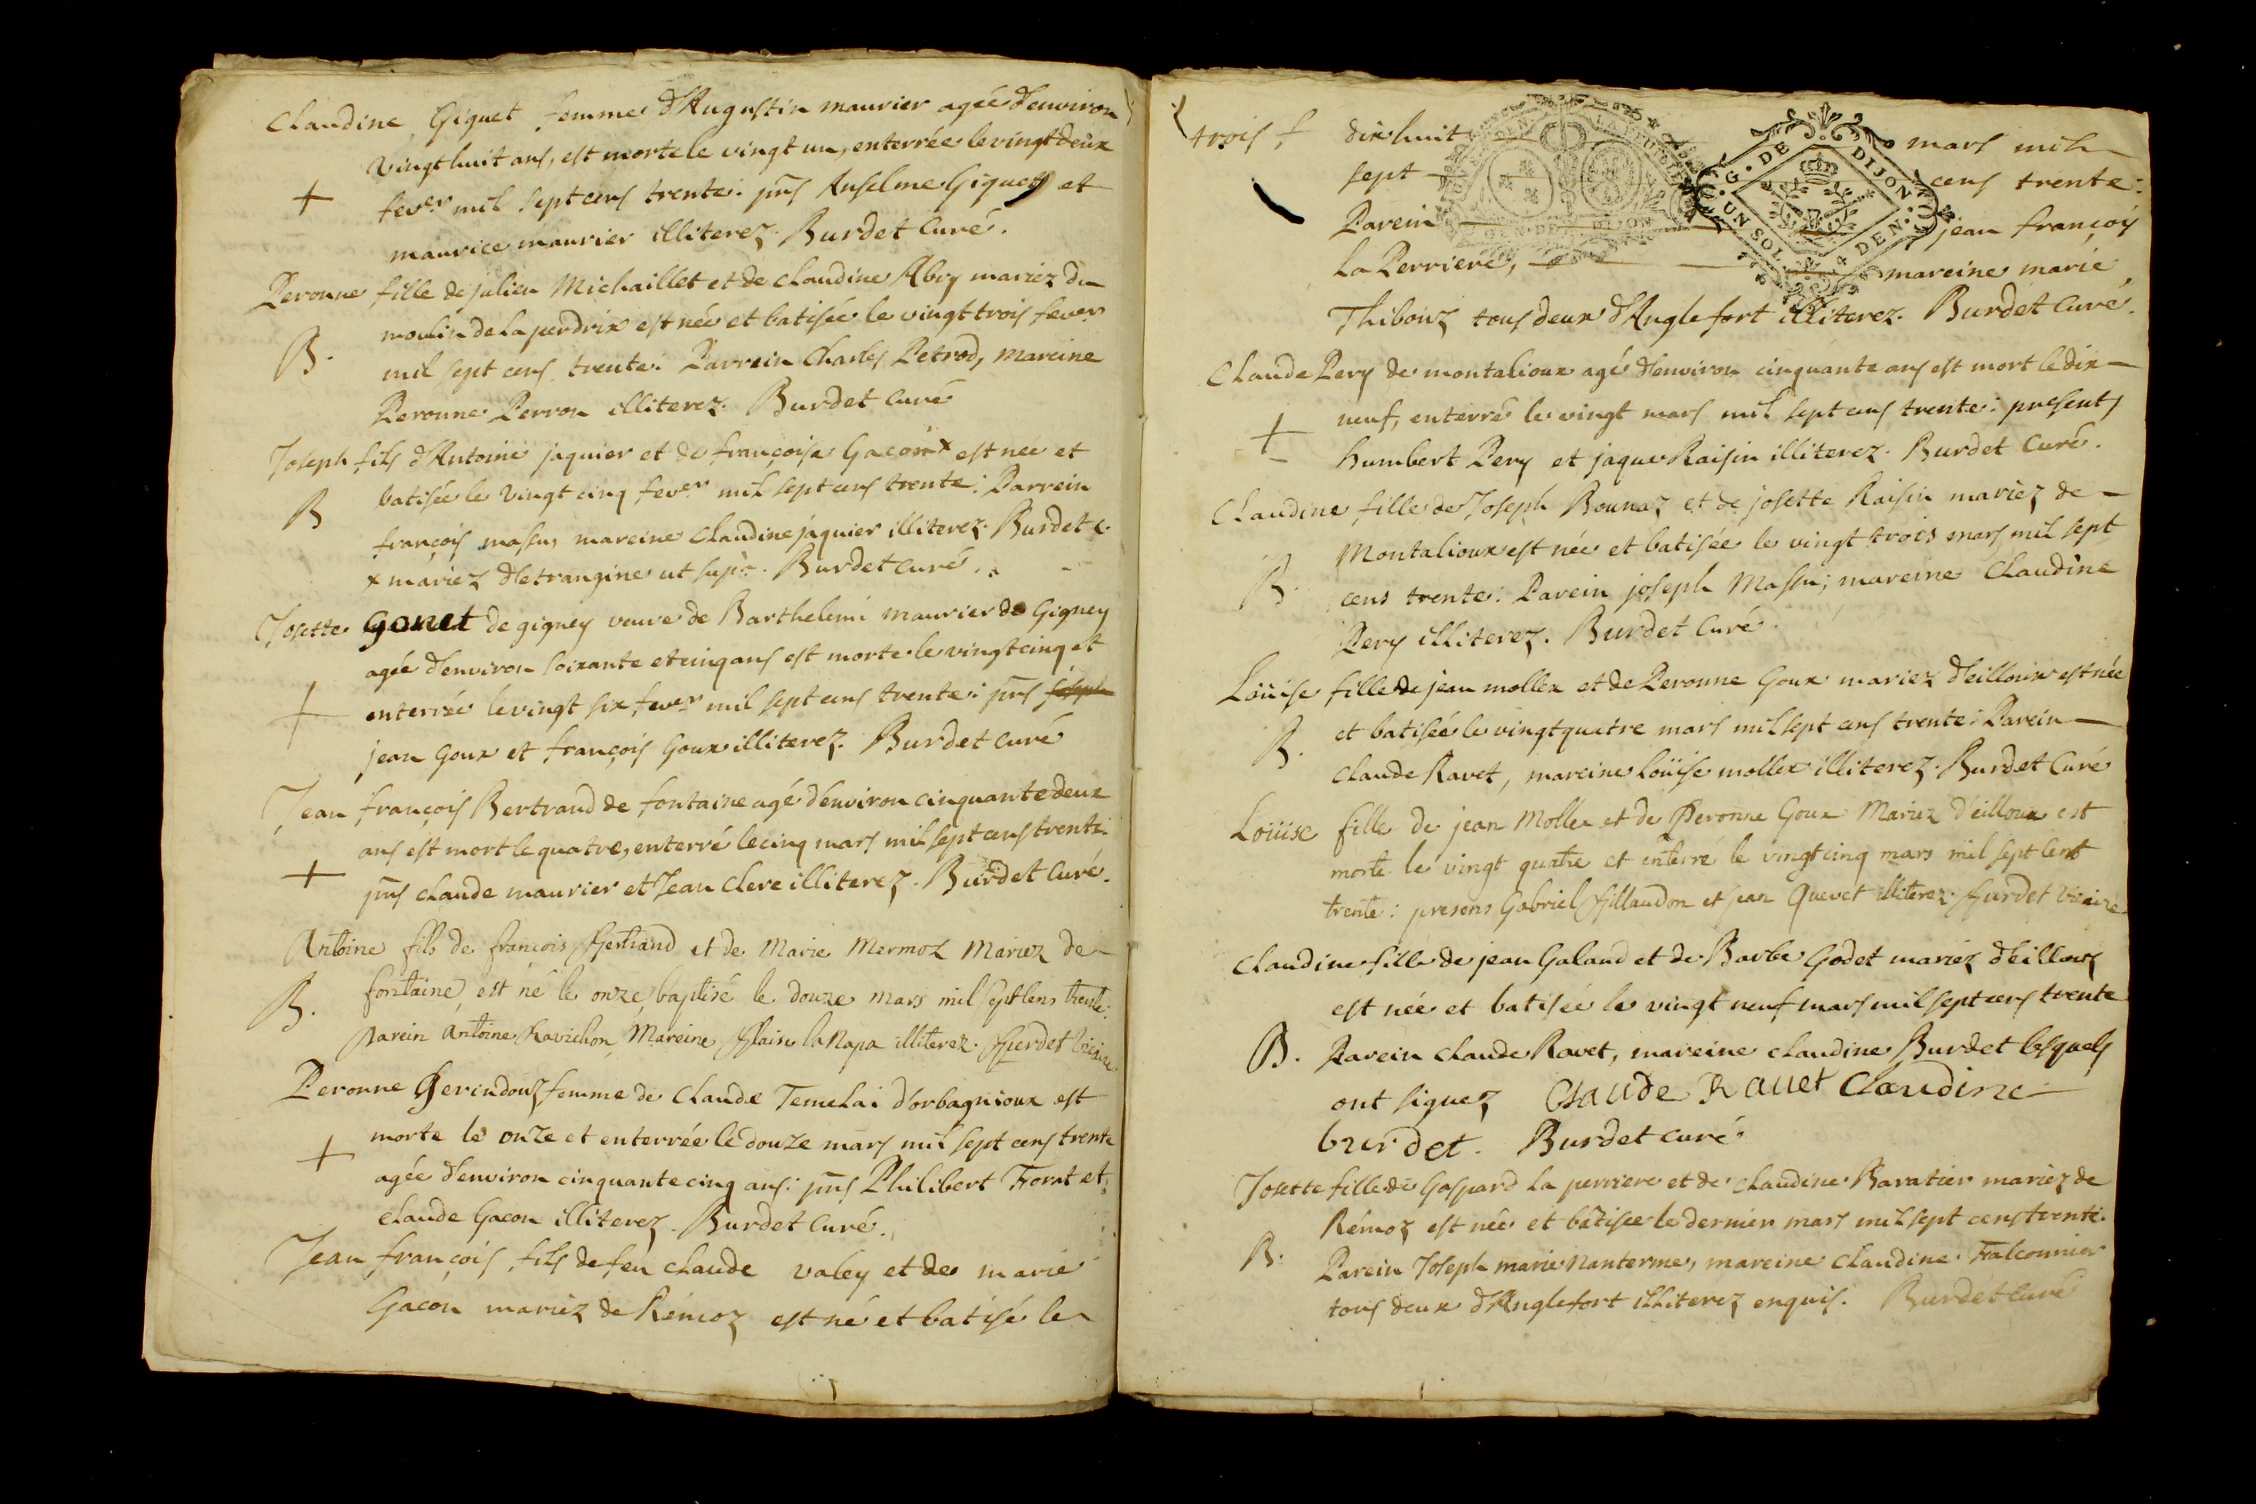 Claudine Giquet femme d'Augustin maurier agée d'environ
vingt huit ans, est morte le vingt un, enterrée le vingt deux
+ fev.er mil sept cens trente: pns Anselme Giquet et
maurice maurier illiterez. Burdet Curé.
Peronne fille de julien Michaillet et de claudine Abry mariez du
moulin de la perdrix est née et batisée le vingt trois fever
B. mil sept cens trente: Parrein Charles Petrod, mareine
Peronne Perron illiterez. Burdet Curé
Joseph fils d'Antoine jaquier et de françoise Gacon x est née et
B batisée le vingt cinq fev.er mil sept cens trente: Parrein
françois massu, mareine Claudine jaquier illiterez. Burdet c.
x mariez d'etrangine ut supr. Burdet curé.
Josette Gonet de gigney veuve de Barthelemi maurier de Gigney
agée d'environ soixante et cinq ans est morte le vingt cinq et
+ enterrée le vingt six fev.er mil sept cens trente: pns joseph
jean Goux et françois Goux illiterez. Burdet curé
Jean françois Bertrand de fontaine agé d'environ cinquante deux
ans est mort le quatre, enterré le cinq mars mil sept cens trente.
+ pns claude maurier et Jean Clere illiterez. Burdet Curé.
Antoine fils de francois Bertrand et de Marie Mermoz Mariez de
B. fontaine, est né le onze baptisé le douze mars mil sept cens trente:
Parein Antoine Ravichon, Mareine Blaise la Napa illiterez. Burdet Vicaire
Peronne Gerindouz femme de Claude Temelai d'orbagnioux est
morte le onze et enterrée le douze mars mil sept cens trente
+ agée d'environ cinquante cinq ans: pns Philibert Trorat et
claude Gacon illiterez. Burdet Curé.
Jean françois fils de feu claude valey et de marie
Gacon mariez de Rémoz est né et batisé le
trois f dix huit mars mil
sept cens trente:
Parein jean françois
La Perriere, mareine marie
Thibouz tous deux d'Anglefort illiterez. Burdet Curé.
G. DE DIJON.
UN SOL 4 DEN.
Claude Pery de montalioux agé d'environ cinquante ans est mort le dix
+ neuf, enterré le vingt mars mil sept cens trente: presents
humbert Pery et jaque Raisin illiterez. Burdet Curé.
Claudine fille de Joseph Bounaz et de josette Raisin mariez de
Montalioux est née et batisée le vingt trois mars mil sept
B. cens trente: Parein joseph Massu; mareine Claudine
Pery illiterez. Burdet Curé.
Loüise fille de jean mollex et de Peronne Goux mariez d'eilloux est née
B. et batisée le vingt quatre mars mil sept cens trente: Parein
claude Ravet, mareine Loüise mollex illiterez. Burdet Curé
Loüise fille de jean Mollex et de Peronne Goux Mariez d'eilloux est
morte le vingt quatre et enterré le vingt cinq mars mil sept cent
trente: presens Gabriel Billaudon et jean Quevet illiterez. Burdet Vicaire
Claudine fille de jean Galand et de Barbe Godet mariez d'eilloux
est née et batisée le vingt neuf mars mil sept cens trente
B. Parein claude Ravet, mareine claudine Burdet lesquels
ont signez Claude Rauet Claudine
burdet. Burdet curé
Josette fille de Gaspard la perriere et de claudine Baratier mariez de
Rémoz est née et bâtisée le dernier mars mil sept cens trente.
B. Parein Joseph marie Nanterme, mareine claudine Falconnier
tous deux d'Anglefort illiterez enquis. Burdet Curé